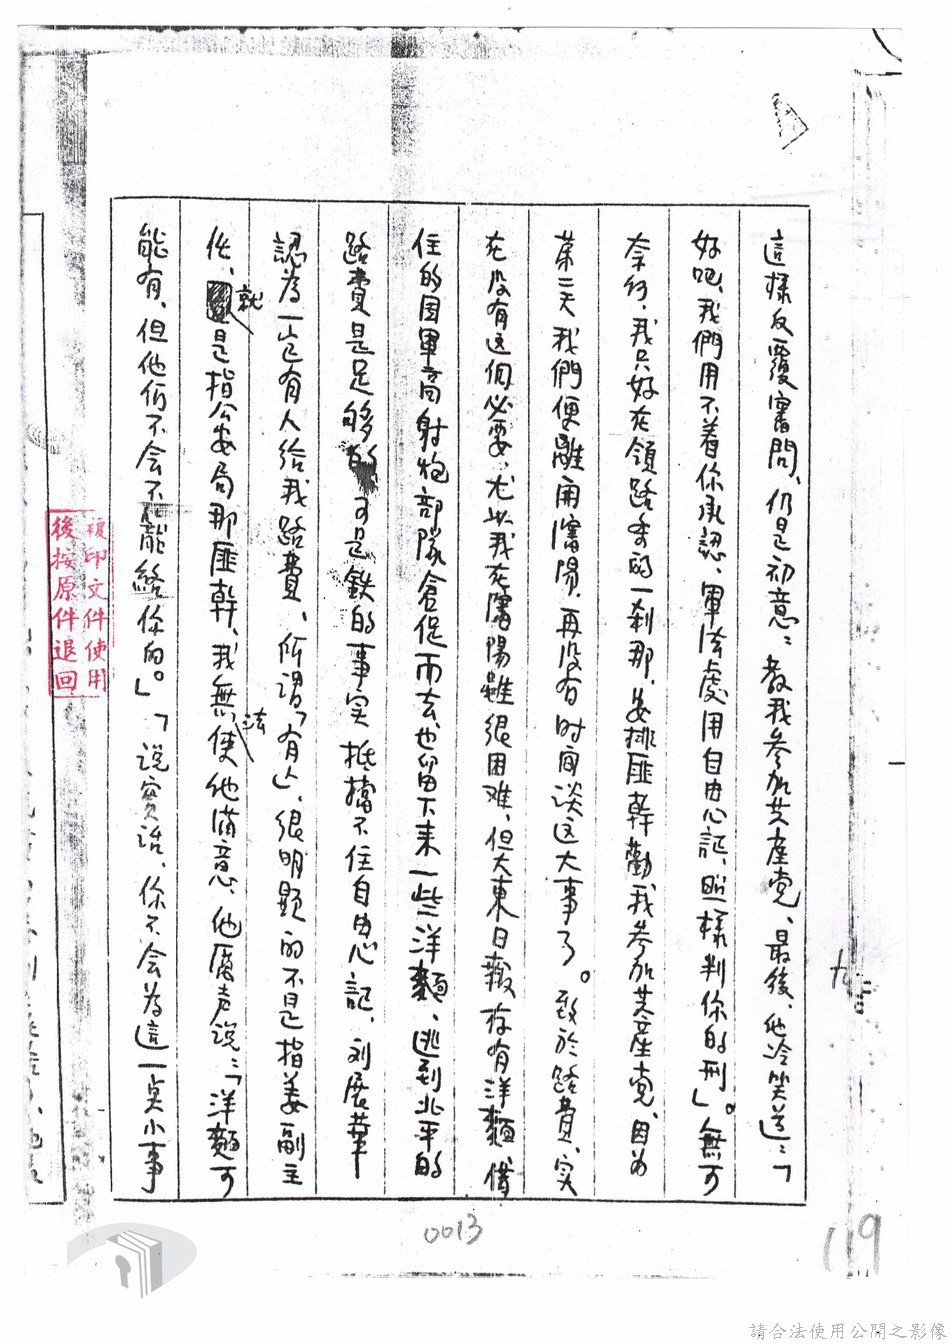 這樣反覆審問、仍是初意：教我参加共產党、最後、他冷笑道：「
好吧、我們用不着你承認、軍法處用自由心証、照樣判你的刑」。無可
奈何、我只好在領路李的一刹那、姜排匪幹勸我参加共產党、因为
第二天我們便離開瀋陽、再没有时间谈这大事了。致於路費、实
在没有这個必要、尤其我在瀋陽雖很困难、但大東日報存有洋麵、借
住的国軍高射炮部隊倉促而去、也留下来一些洋麵、逃到北平的
路費是足够的 可是鉄的事实 抵擋不住自由心証、刘展華
認為一定有人给我路費、所謂「有人」、很明顯的不是指姜副主
任、就是指公安局那匪幹、我無法使他满意、他厲声说：「洋麵可
能有、但他们不会不能給你的。」「说实话、你不会为這一点小事
複印文件使用
後按原件退回
0013
119
請合法使用公開之影像